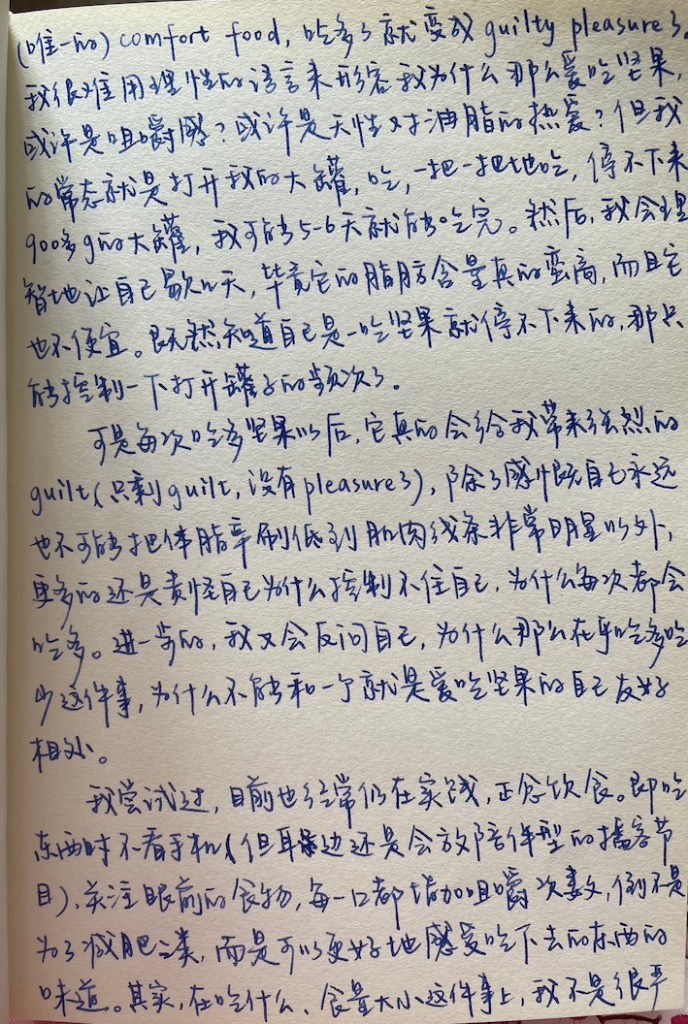 (唯一的) comfort food, 吃多了就变成 guilty pleasure了。
我很难用理性的语言来形容我为什么那么爱吃坚果,
或许是咀嚼感？或许是天性对油脂的热爱？但我
的常态就是打开我的大罐,吃,一把一把地吃,停不下来
900多g的大罐,我可能5-6天就能吃完。然后,我会理
智地让自己歇几天,毕竟它的脂肪含量真的蛮高,而且它
也不便宜。既然知道自己是一吃坚果就停不下来的,那只
能控制一下打开罐子的频次了。
可是每次吃多坚果以后,它真的会给我带来强烈的
guilt(只剩guilt,没有pleasure了),除了感慨自己永远
也不可能把体脂率刷低到肌肉线条非常明显以外,
更多的还是责怪自己为什么控制不住自己,为什么每次都会
吃多。进一步的,我又会反问自己,为什么那么在乎吃多吃
少这件事,为什么不能和一个就是爱吃坚果的自己友好
相处。
我尝试过,目前也经常仍在实践,正念饮食。即吃
东西时不看手机(但耳边还是会放陪伴型的播客节
目),关注眼前的食物,每一口都增加咀嚼次数,倒不是
为了减肥之类,而是可以更好地感受吃下去的东西的
味道。其实,在吃什么、食量大小这件事上,我不是很严